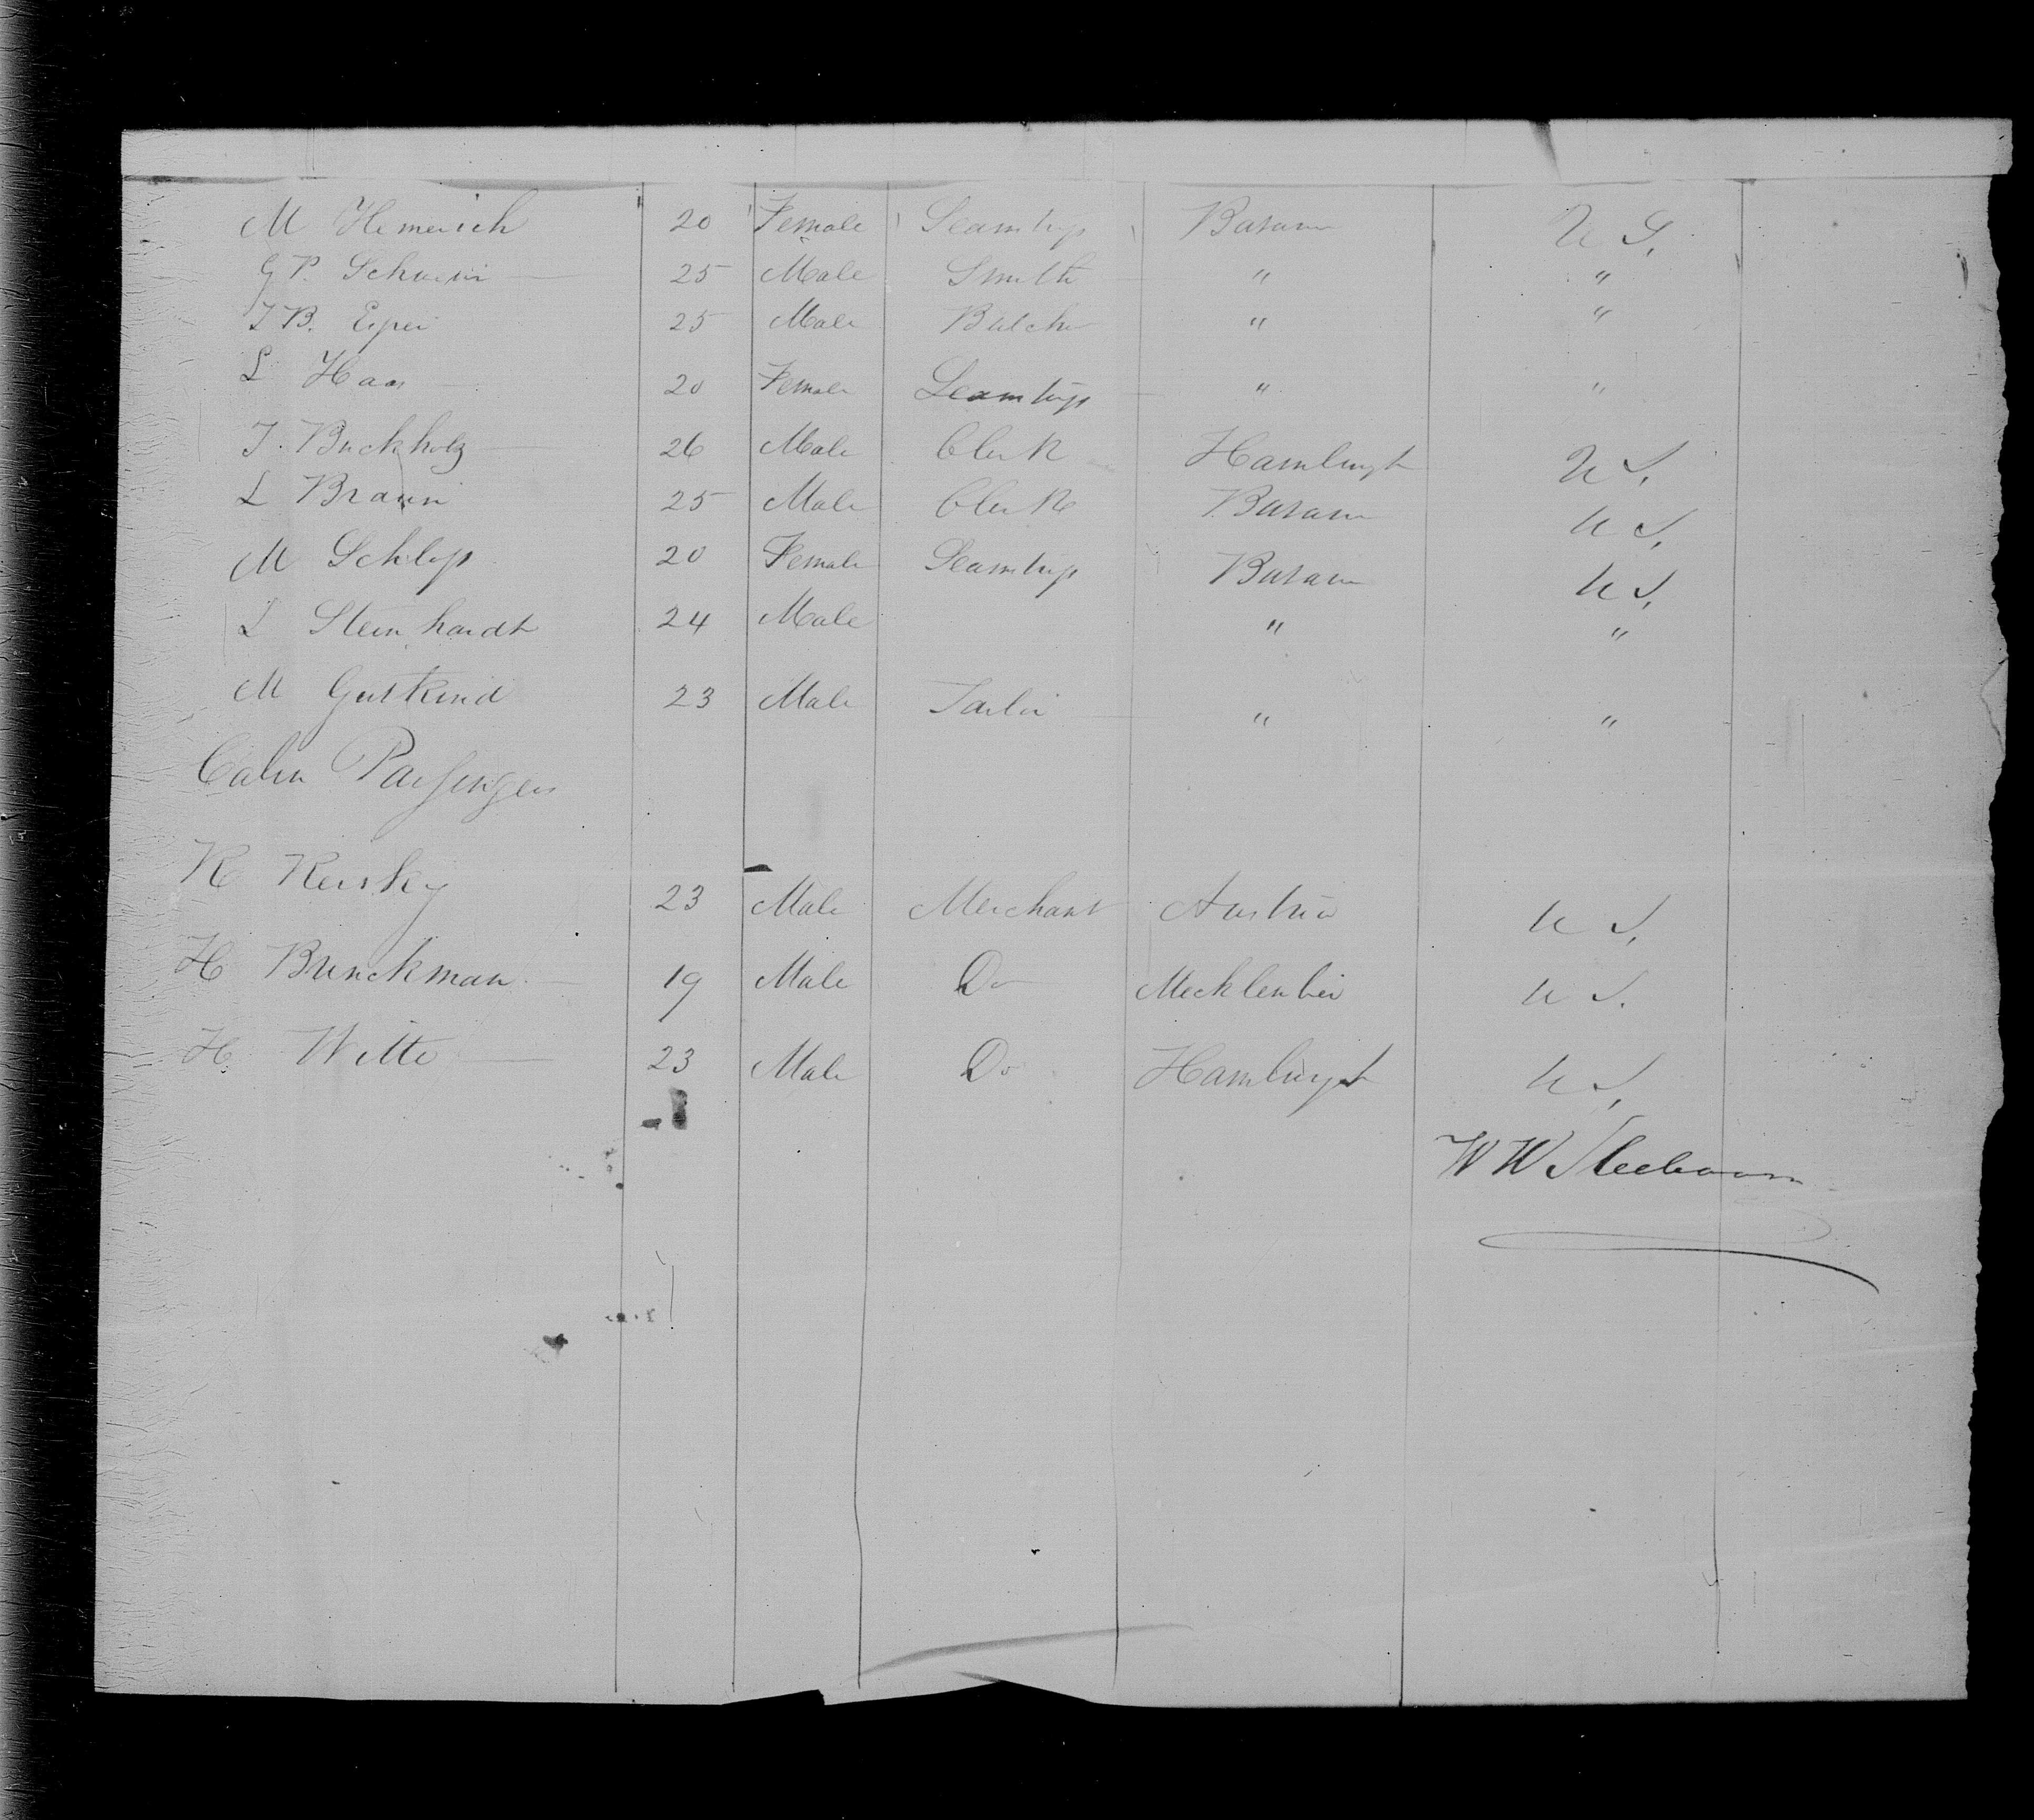 M Hemerich 20 Female Seamtrys Bavara U S.
G P. Schwein 25 Male Smith " "
J B. Eiper 25 Male Butcher " "
L Haas 20 Female Seamtrys " "
J. Buckholz 26 Male Clerk Hamburgh U S.
L Braun 25 Male Clerk Bavara U S.
M Schlop 20 Female Seamtrys Bavara U S.
L Steinhardt 24 Male " "
M Gutkind 23 Male Tailor " "
Cabin Passengers
K Kersky 23 Male Merchant Austria U S.
H Brinckman 19 Male Do Mecklenber U S.
H Witte 23 Male Do Hamburgh U S.
W W